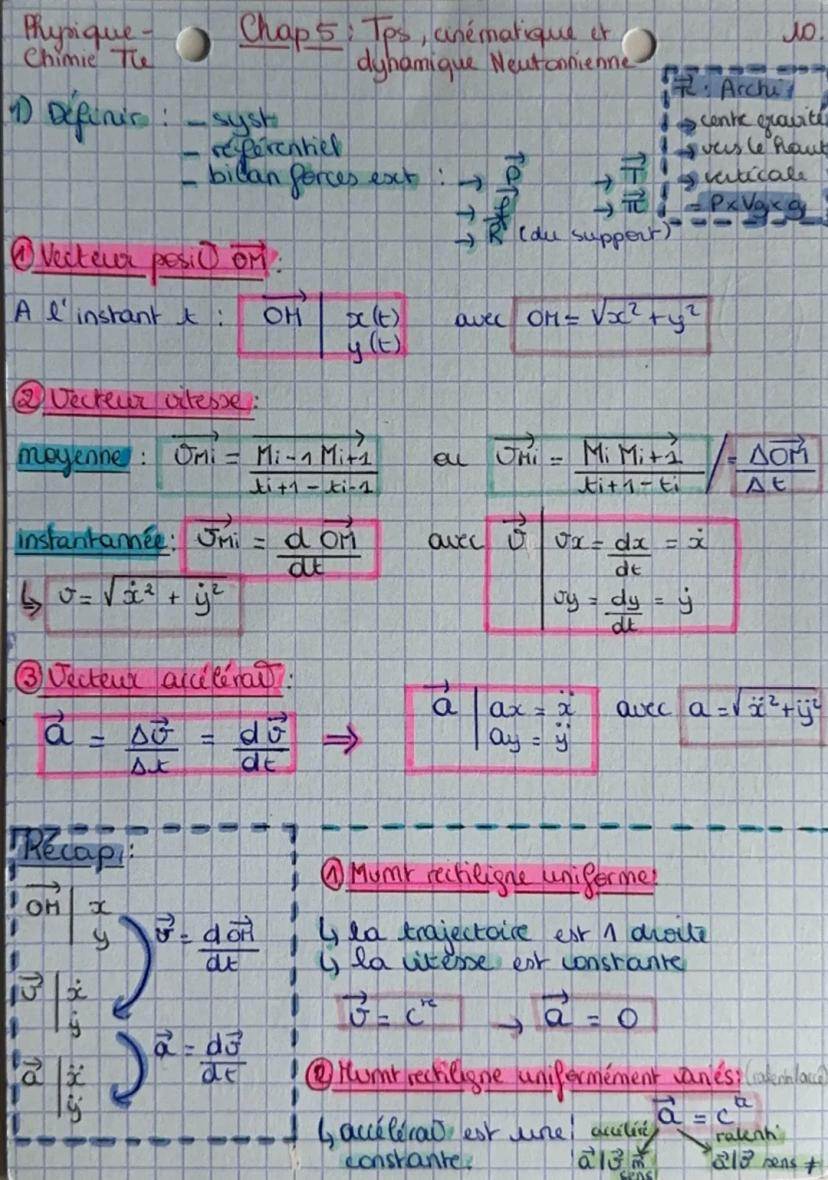 Physique - Chap 5 : Tps, cinématique et 10.
Chimie Tle dynamique Newtonnienne
1) Définir : - syst
- référentiel
- bilan forces ext : → P⃗ → T⃗
→ f⃗ → π⃗
→ R⃗ (du support)
π⃗ : Archi
→ centre gravité
→ vers le haut
→ verticale
= ρ × Vg × g
① Vecteur posit° OM⃗ :
A l'instant t : OM⃗ | x(t) avec OM = √x² + y²
y(t)
② Vecteur vitesse :
moyenne : v⃗Mi = Mi-1 Mi+1 / ti+1 - ti-1 ou v⃗Mi = Mi Mi+1 / ti+1 - ti / = ΔOM⃗ / Δt
instantannée : v⃗Mi = d OM⃗ / dt avec v⃗ | vx = dx/dt = ẋ
↳ v = √ẋ² + ẏ² vy = dy/dt = ẏ
③ Vecteur accélérat° :
a⃗ = Δv⃗/Δt = dv⃗/dt ⇒ a⃗ | ax = ẍ avec a = √ẍ² + ÿ²
ay = ÿ
Récap :
OM⃗ | x
y
v⃗ = dOM⃗/dt
v⃗ | ẋ
ẏ
a⃗ = dv⃗/dt
a⃗ | ẍ
ÿ
① Mvmt rectiligne uniforme :
↳ la trajectoire est 1 droite
↳ la vitesse est constante
v⃗ = Cte → a⃗ = 0
② Mvmt rectiligne uniformément variés : (ralenti/accé
a⃗ = Cte
↳ accélérat° est une accéléré ralenti
constante. a⃗ | v⃗ m̂ sens a⃗ | v⃗ sens ≠